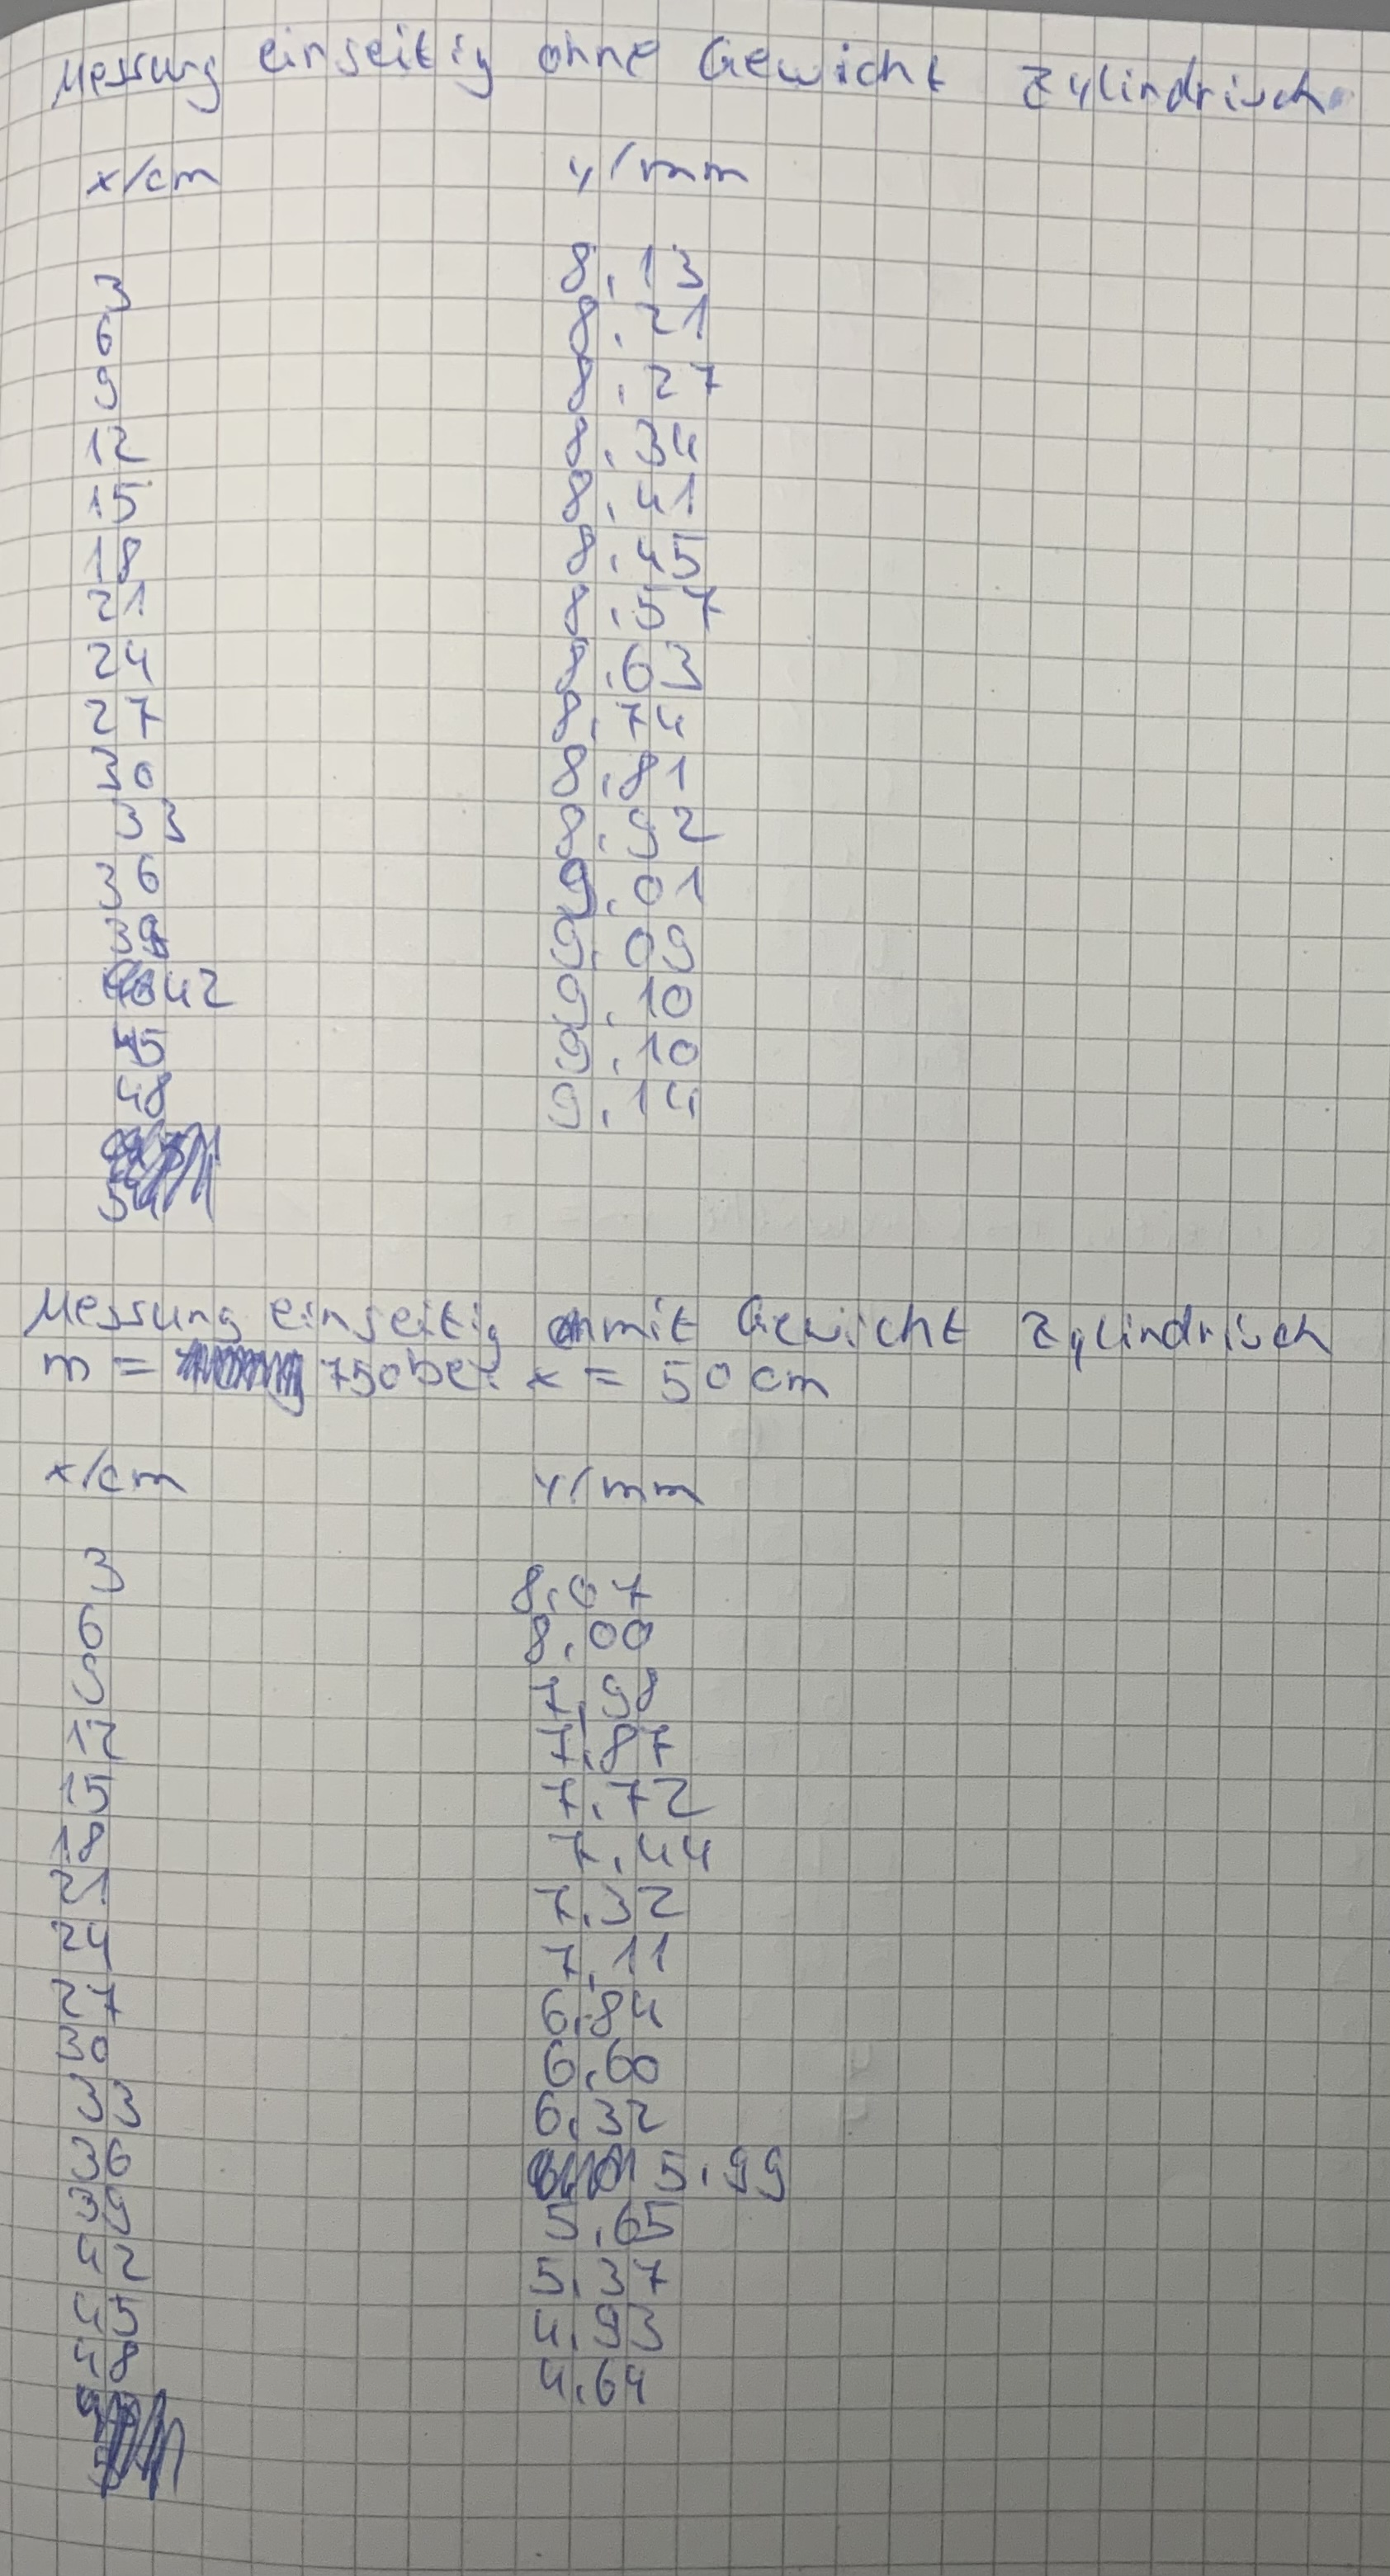 Messung einseitig ohne Gewicht Zylindrisch
x/cm y/mm
3 8.13
6 8.21
9 8.27
12 8.34
15 8.41
18 8.45
21 8.57
24 8.63
27 8.74
30 8.81
33 8.92
36 9.01
39 9.09
42 9.10
45 9.10
48 9.14
54
Messung einseitig mit Gewicht Zylindrisch
m = 750 bei x = 50 cm
x/cm y/mm
3 8.07
6 8.00
9 7.98
12 7.87
15 7.72
18 7.44
21 7.32
24 7.11
27 6.84
30 6.60
33 6.32
36 5.99
39 5.65
42 5.37
45 4.93
48 4.64